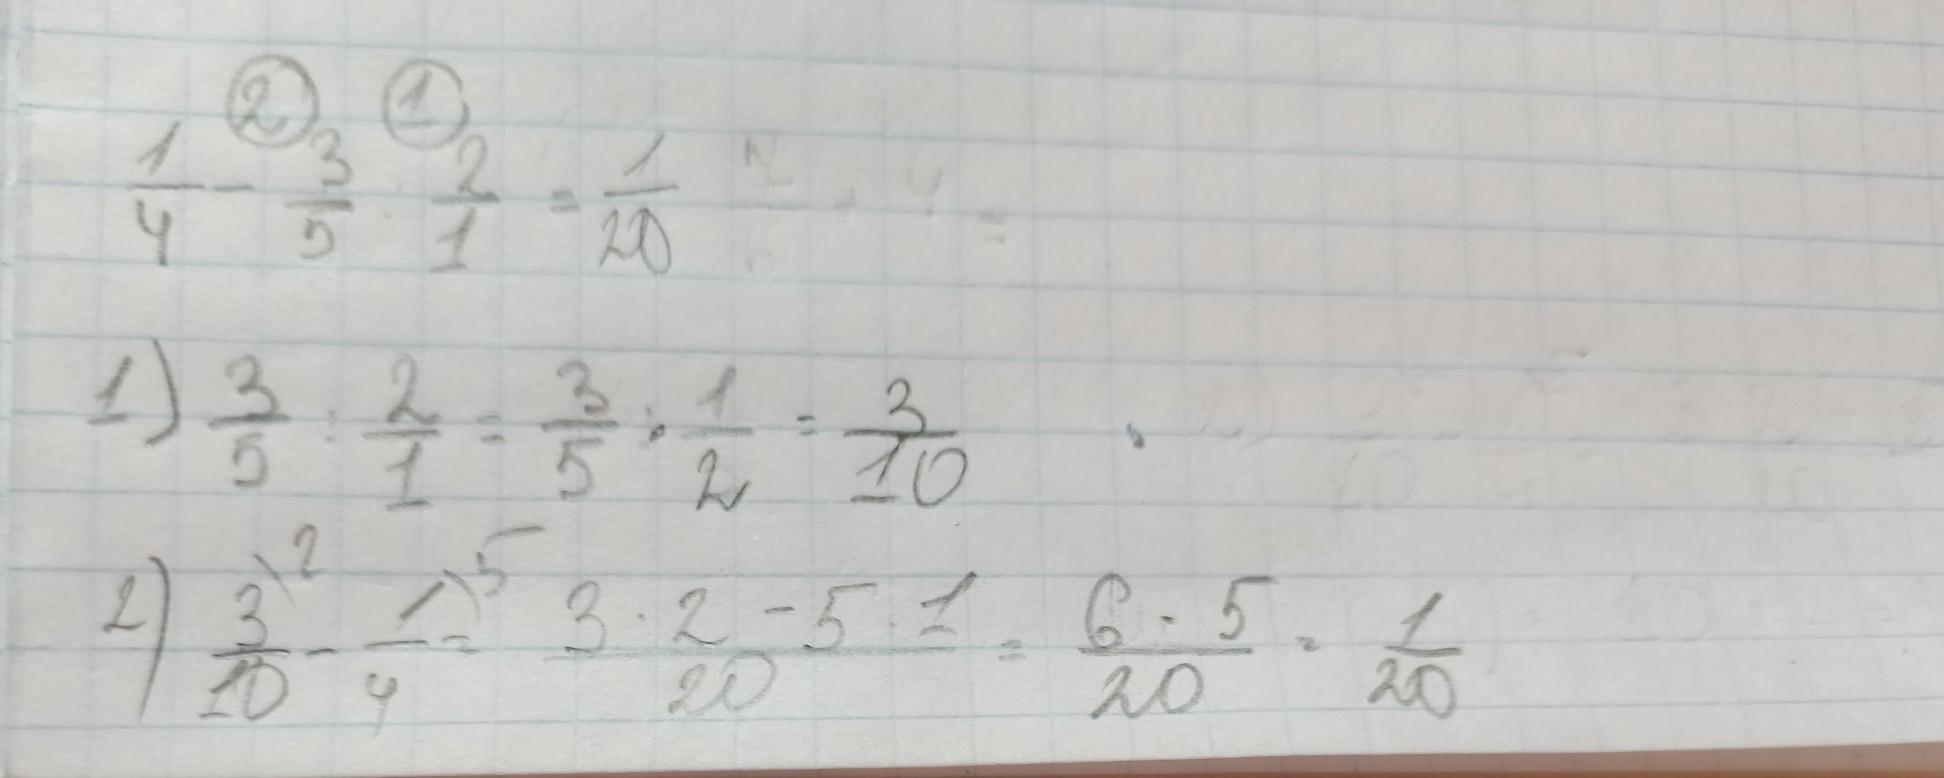 ② ①
1/4 - 3/5 : 2/1 = 1/20
1) 3/5 : 2/1 = 3/5 · 1/2 = 3/10
2) 3\2/10 - 1\5/4 = 3·2-5·1/20 = 6-5/20 = 1/20